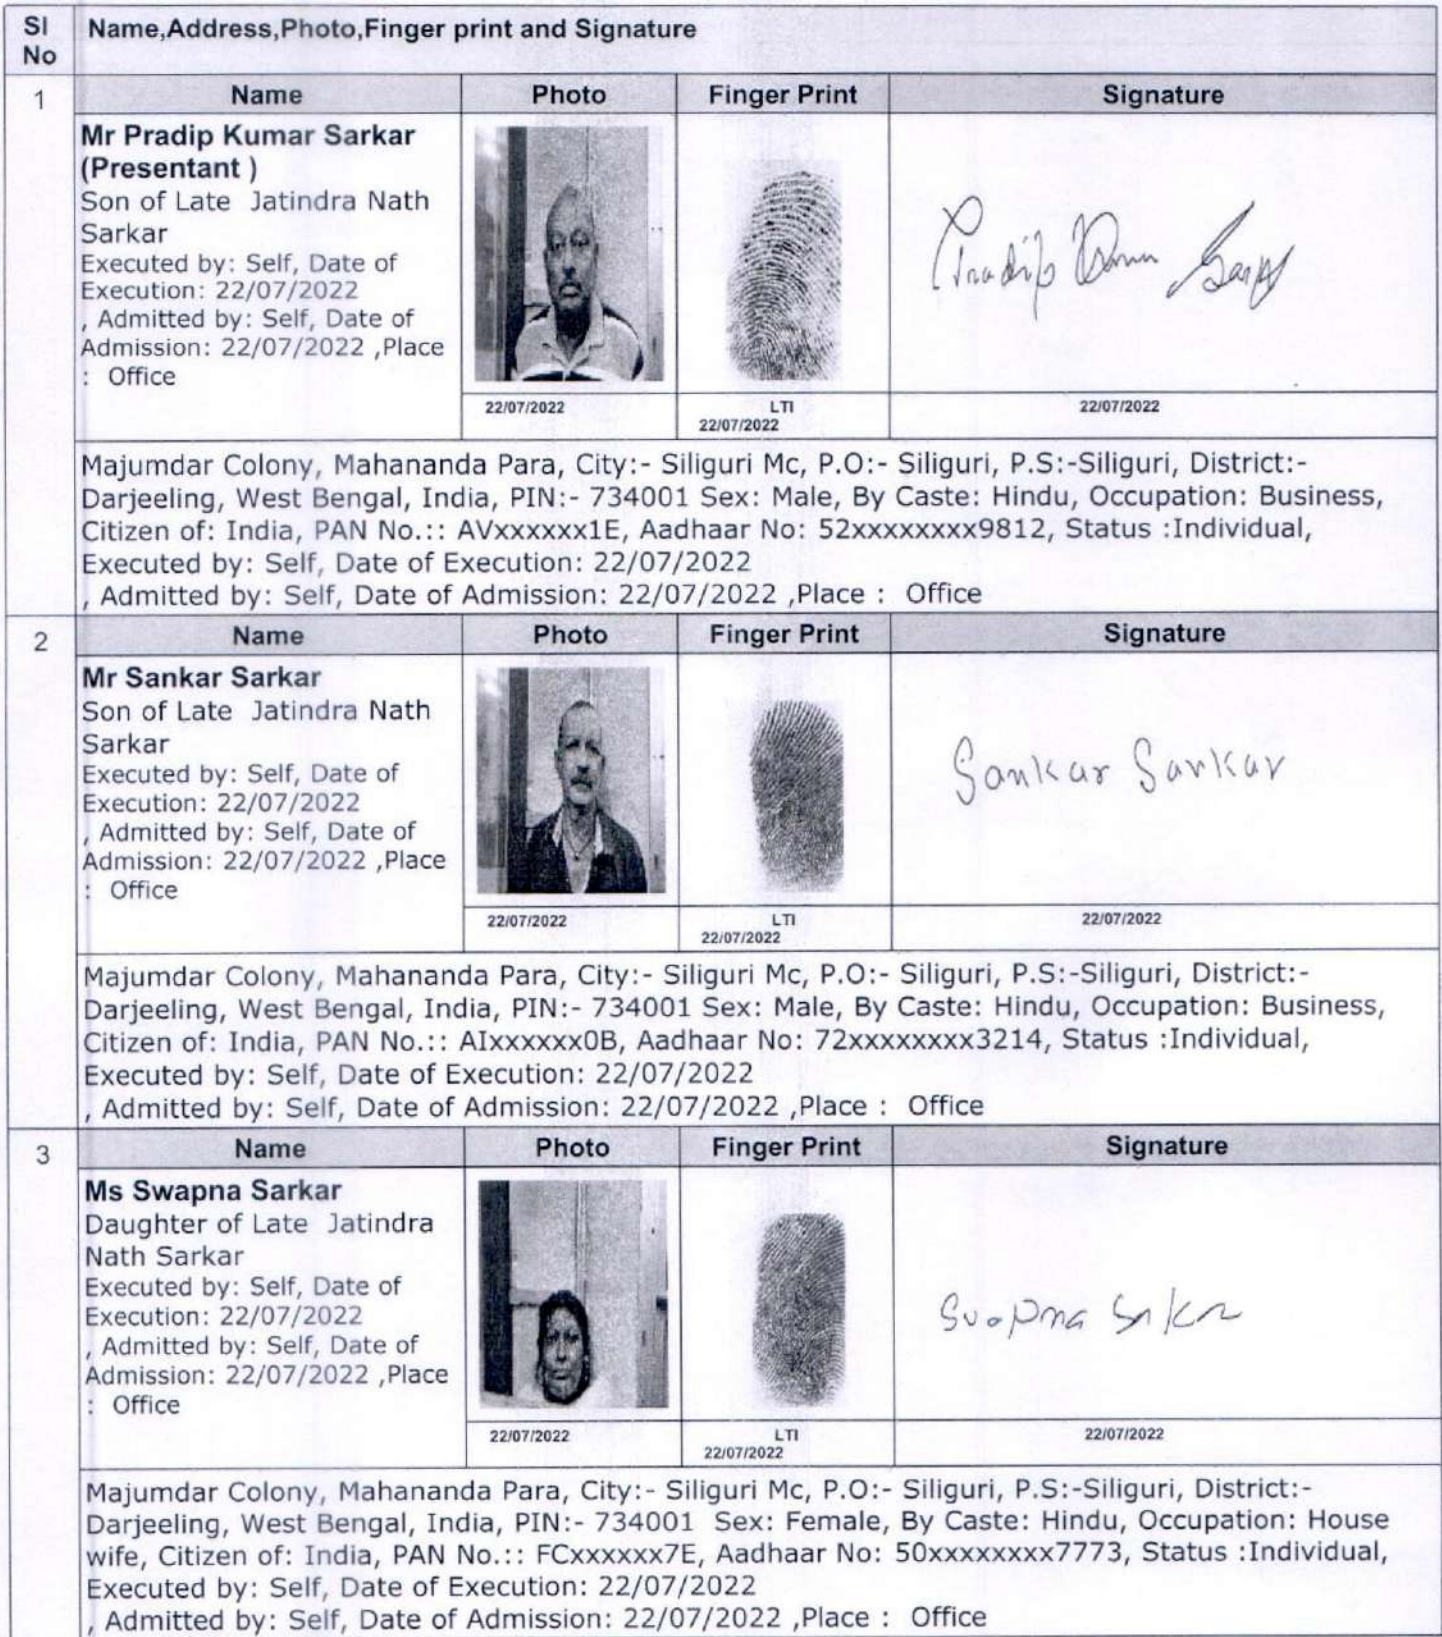 Sl No
Name,Address,Photo,Finger print and Signature
1
Name Photo Finger Print Signature
Mr Pradip Kumar Sarkar
(Presentant )
Son of Late Jatindra Nath
Sarkar
Executed by: Self, Date of
Execution: 22/07/2022
, Admitted by: Self, Date of
Admission: 22/07/2022 ,Place
: Office
Pradip Kumar Sarkar
22/07/2022
LTI
22/07/2022
22/07/2022
Majumdar Colony, Mahananda Para, City:- Siliguri Mc, P.O:- Siliguri, P.S:-Siliguri, District:-
Darjeeling, West Bengal, India, PIN:- 734001 Sex: Male, By Caste: Hindu, Occupation: Business,
Citizen of: India, PAN No.:: AVxxxxxx1E, Aadhaar No: 52xxxxxxxx9812, Status :Individual,
Executed by: Self, Date of Execution: 22/07/2022
, Admitted by: Self, Date of Admission: 22/07/2022 ,Place : Office
2
Name Photo Finger Print Signature
Mr Sankar Sarkar
Son of Late Jatindra Nath
Sarkar
Executed by: Self, Date of
Execution: 22/07/2022
, Admitted by: Self, Date of
Admission: 22/07/2022 ,Place
: Office
Sankar Sarkar
22/07/2022
LTI
22/07/2022
22/07/2022
Majumdar Colony, Mahananda Para, City:- Siliguri Mc, P.O:- Siliguri, P.S:-Siliguri, District:-
Darjeeling, West Bengal, India, PIN:- 734001 Sex: Male, By Caste: Hindu, Occupation: Business,
Citizen of: India, PAN No.:: AIxxxxxx0B, Aadhaar No: 72xxxxxxxx3214, Status :Individual,
Executed by: Self, Date of Execution: 22/07/2022
, Admitted by: Self, Date of Admission: 22/07/2022 ,Place : Office
3
Name Photo Finger Print Signature
Ms Swapna Sarkar
Daughter of Late Jatindra
Nath Sarkar
Executed by: Self, Date of
Execution: 22/07/2022
, Admitted by: Self, Date of
Admission: 22/07/2022 ,Place
: Office
22/07/2022
LTI
22/07/2022
22/07/2022
Majumdar Colony, Mahananda Para, City:- Siliguri Mc, P.O:- Siliguri, P.S:-Siliguri, District:-
Darjeeling, West Bengal, India, PIN:- 734001 Sex: Female, By Caste: Hindu, Occupation: House
wife, Citizen of: India, PAN No.:: FCxxxxxx7E, Aadhaar No: 50xxxxxxxx7773, Status :Individual,
Executed by: Self, Date of Execution: 22/07/2022
, Admitted by: Self, Date of Admission: 22/07/2022 ,Place : Office